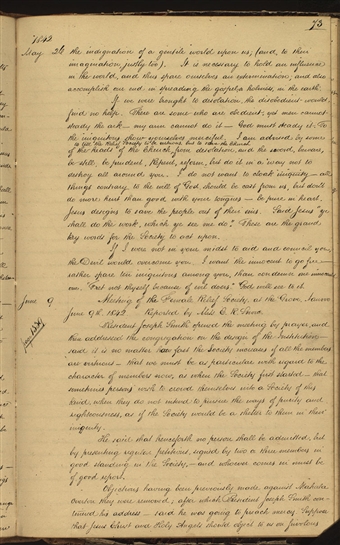 73
1842
May 26 the indignation of a gentile world upon us; (and, to their
imagination, justly too). It is necessary to hold an influence
in the world, and thus spare ourselves an extermination; and also
accomplish our end in spreading the gospel, or holiness, in the earth.
If we were brought to desolation, the disobedient would
find no help. There are some who are obedient; yet man cannot
steady the ark — my arm cannot do it — God must steady it. To
the iniquitous show yourselves merciful. I am advised by some
of the heads of the Church
to tell the Relief Society to be virtuous, but to save the Church
from desolation and the sword; beware,
be still, be prudent, repent, reform, but do it in a way not to
destroy all around you. I do not want to cloak iniquity — all
things contrary to the will of God, should be cast from us, but don't
do more hurt than good with your tongues — be pure in heart.
Jesus designs to save the people out of their sins. Said Jesus "ye
shall do the work, which ye see me do." These are the grand
key words for the Society to act upon.
If I were not in your midst to aid and counsel you,
the Devil would overcome you. I want the innocent to go free —
rather spare ten iniquitous among you, than condemn one innocent
one. "Fret not thyself because of evil doers." God will see to it.
June 9 Meeting of the Female Relief Society, at the Grove, Nauvoo
June 9th. 1842. Reported by Miss E. R. Snow.
President Joseph Smith opened the meeting by prayer, and
then addressed the congregation on the design of the Institution —
said it is no matter how fast the Society increases if all the members
are virtuous — that we must be as particular with regard to the
character of members now, as when the Society first started — that
sometimes persons wish to crowd themselves into a Society of this
kind, when they do not intend to pursue the ways of purity and
righteousness, as if the Society would be a shelter to them in their
iniquity.
He said that henceforth no person shall be admitted, but
by presenting regular petitions, signed by two or three members in
good standing in the Society, — and whoever comes in must be
of good report.
Objections having been previously made against Mahala
Overton they were removed; after which President Joseph Smith con-
tinued his address — said he was going to preach mercy. Suppose
that Jesus Christ and Holy Angels should object to us on frivolous